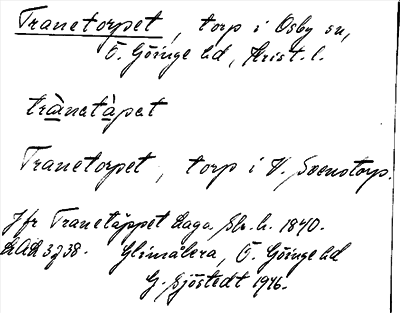 Tranetorpet, torp i Osby sn,
Ö. Göinge hd, Krist. l.
trànetàpet
Tranetorpet, torp i V. Svenstorp.
Jfr Tranetåppet Laga Sk. h. 1870.
Glimåkra, Ö. Göinge hd
G. Sjöstedt 1976.